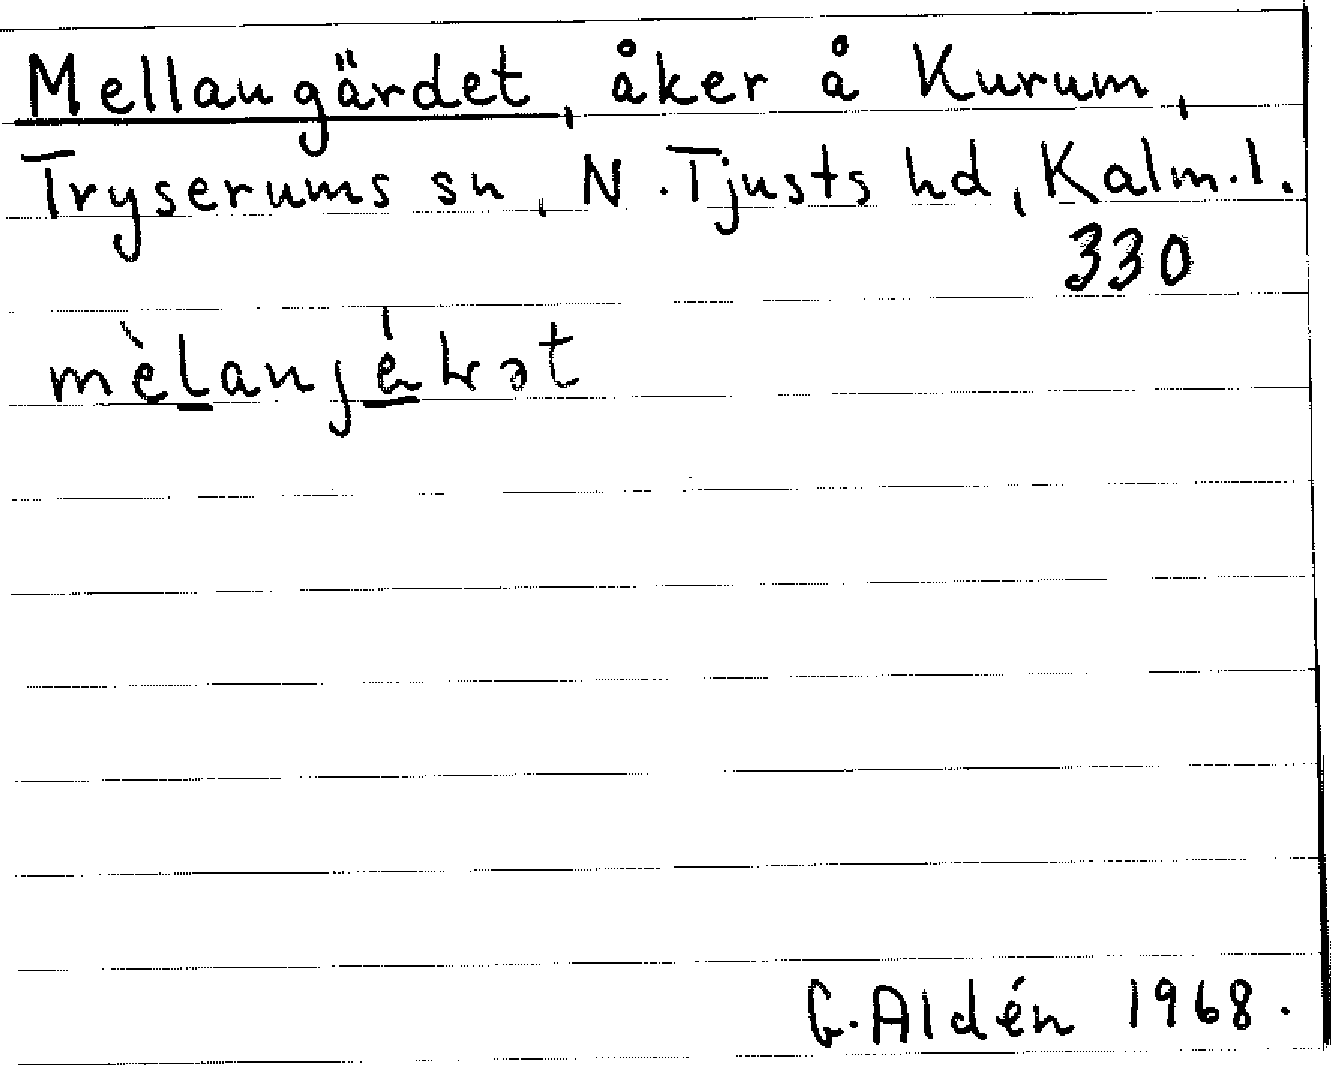 Mellangärdet, åker å Kurum,
Tryserums sn, N. Tjusts hd, Kalm.l.
330
G. Aldén 1968.